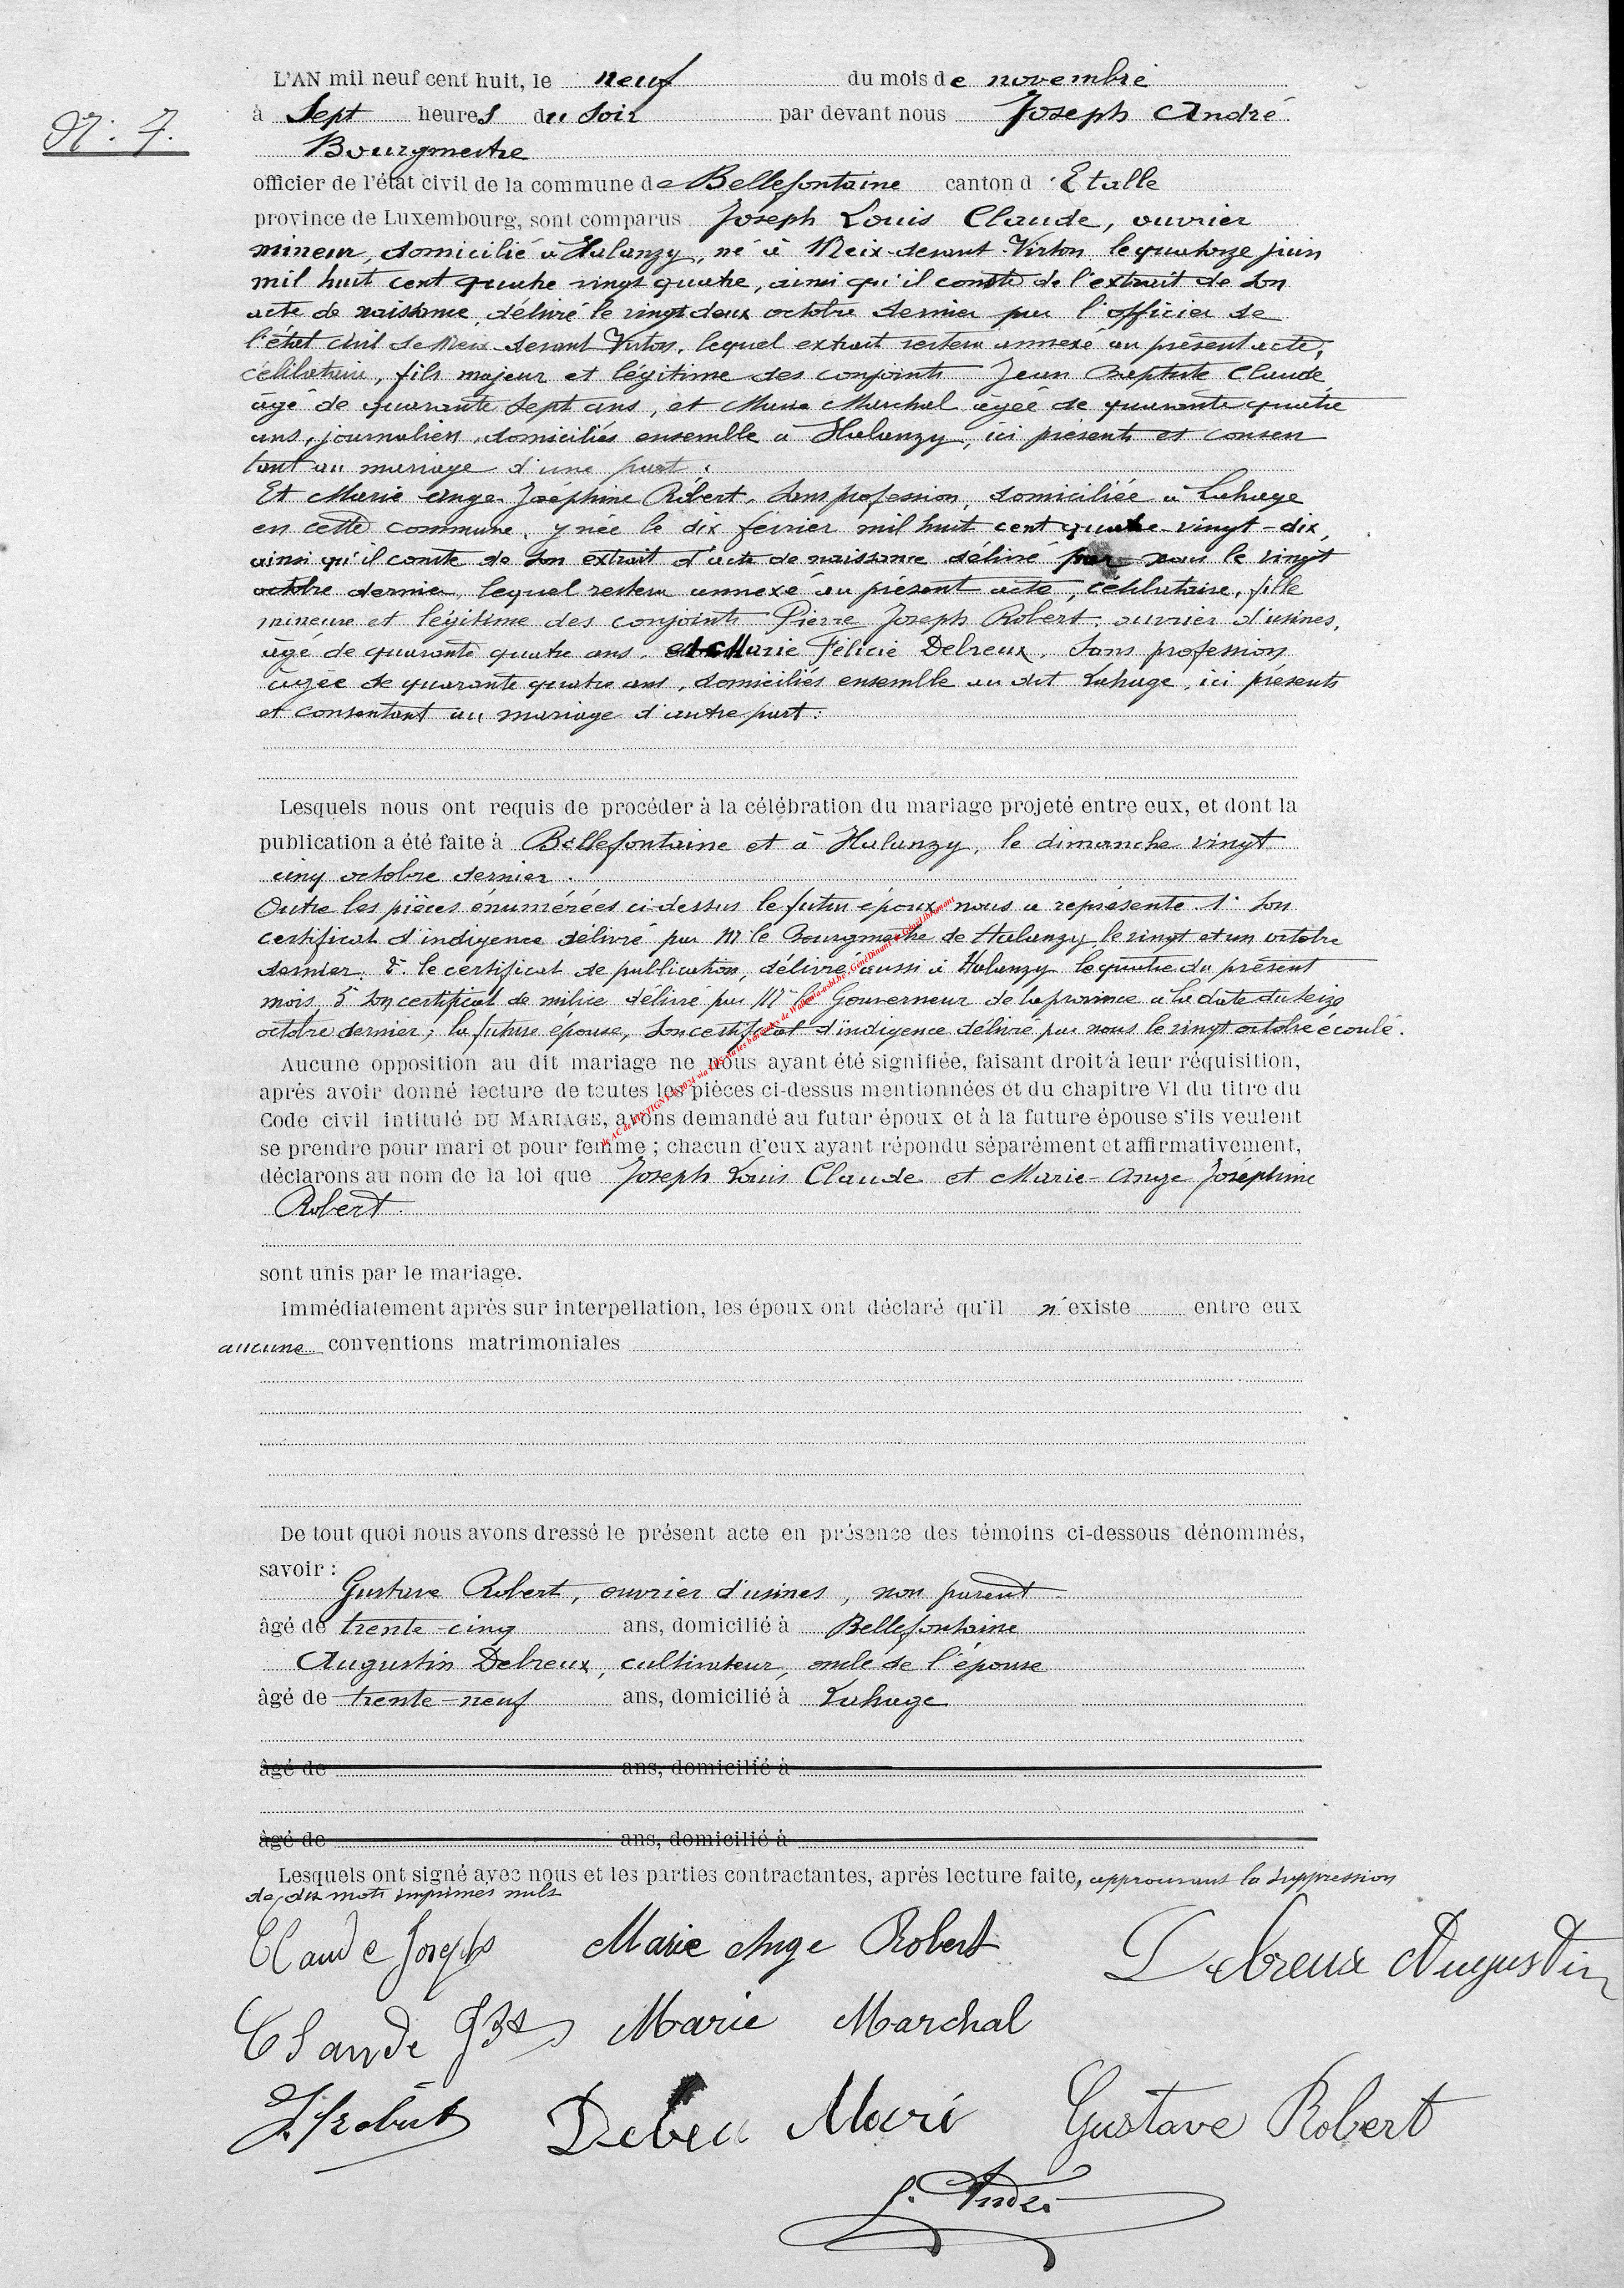 N°. 7.
L'AN mil neuf cent huit, le neuf du mois de novembre
à Sept heures du Soir par devant nous Joseph André
Bourgmestre
officier de l'état civil de la commune de Bellefontaine canton d'Etalle
province de Luxembourg, sont comparus Joseph Louis Claude, ouvrier
mineur, domicilié à Halanzy, né à Meix-devant-Virton le quatorze juin
mil huit cent quatre vingt quatre, ainsi qu'il conste de l'extrait de son
acte de naissance, délivré le vingt deux octobre dernier par l'officier de
l'état civil de Meix-devant Virton, lequel extrait restera annexé au présent acte,
célibataire, fils majeur et légitime des conjoints Jean Baptiste Claude
âgé de quarante sept ans, et Marie Marchal âgée de quarante quatre
ans, journaliers, domiciliés ensemble à Halanzy, ici présents et consen
tant au mariage d'une part.
Et Marie Ange Joséphine Robert, sans profession, domiciliée à Lahage
en cette commune, y née le dix février mil huit cent quatre-vingt-dix,
ainsi qu'il conste de son extrait d'acte de naissance délivré par nous le vingt
octobre dernier, lequel restera annexé au présent acte, célibataire, fille
mineure et légitime des conjoints Pierre Joseph Robert, ouvrier d'usines,
âgé de quarante quatre ans, et Marie Félicie Debreux, sans profession
âgée de quarante quatre ans, domiciliés ensemble au dit Lahage, ici présents
et consentant au mariage d'autre part.
Lesquels nous ont requis de procéder à la célébration du mariage projeté entre eux, et dont la
publication a été faite à Bellefontaine et à Halanzy, le dimanche vingt
cinq octobre dernier.
Outre les pièces énumérées ci-dessus le futur époux nous a représenté 1° Son
certificat d'indigence délivré par Mr le Bourgmestre de Halanzy le vingt et un octobre
dernier; 2° le certificat de publication, délivré aussi à Halanzy le quatre du présent
mois 3° son certificat de milice délivré par Mr le Gouverneur de la province à la date du seize
octobre dernier; la future épouse, son certificat d'indigence délivré par nous le vingt octobre écoulé.
Aucune opposition au dit mariage ne nous ayant été signifiée, faisant droit à leur réquisition,
après avoir donné lecture de toutes les pièces ci-dessus mentionnées et du chapitre VI du titre du
Code civil intitulé DU MARIAGE, avons demandé au futur époux et à la future épouse s'ils veulent
se prendre pour mari et pour femme ; chacun d'eux ayant répondu séparément et affirmativement,
déclarons au nom de la loi que Joseph Louis Claude et Marie-Ange Joséphine
Robert.
sont unis par le mariage.
Immédiatement après sur interpellation, les époux ont déclaré qu'il n'existe entre eux
aucune conventions matrimoniales
De tout quoi nous avons dressé le présent acte en présence des témoins ci-dessous dénommés,
savoir :
Gustave Robert, ouvrier d'usines, non parent
âgé de trente-cinq ans, domicilié à Bellefontaine
Augustin Debreux, cultivateur, oncle de l'épouse
âgé de trente-neuf ans, domicilié à Lahage
âgé de ans, domicilié à
âgé de ans, domicilié à
Lesquels ont signé avec nous et les parties contractantes, après lecture faite, approuvant la suppression
de dix mots imprimés nuls
Claude Joseph Marie Ange Robert Debreux Augustin
Claude JBte Marie Marchal
J. Robert Debreu Marie Gustave Robert
J. André